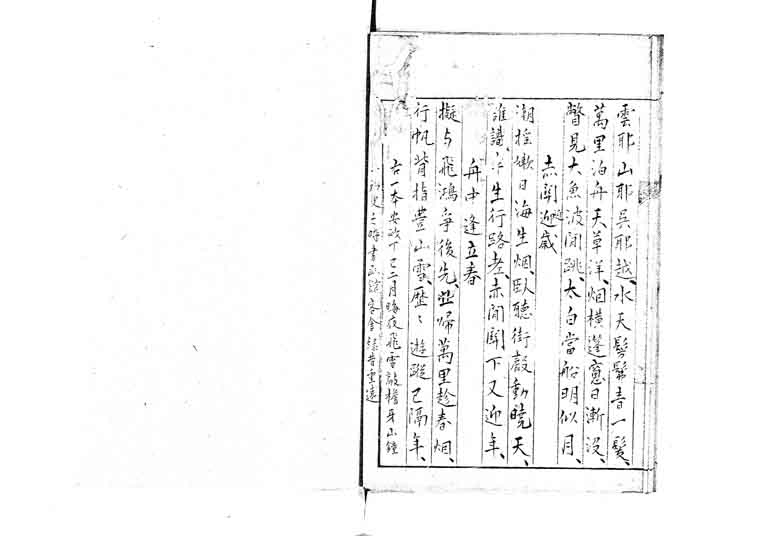 雲耶山耶呉耶越、水天髣髴青一髪、
萬里泊舟天草洋、烟横蓬窓日漸没、
瞥見大魚波間跳、太白當船明似月、
赤間迎歳
潮揺嫩日海生烟、臥聴街鼓動曉天、
誰識、平生行路老、赤間関下又迎年、
舟中逢立春
擬与飛鴻争後先、北帰萬里趁春烟、
行帆背指豊山雪、歴〻遊蹤已隔年、
右一本安政丁巳二月晦夜飛雪敲檐牙山鐘